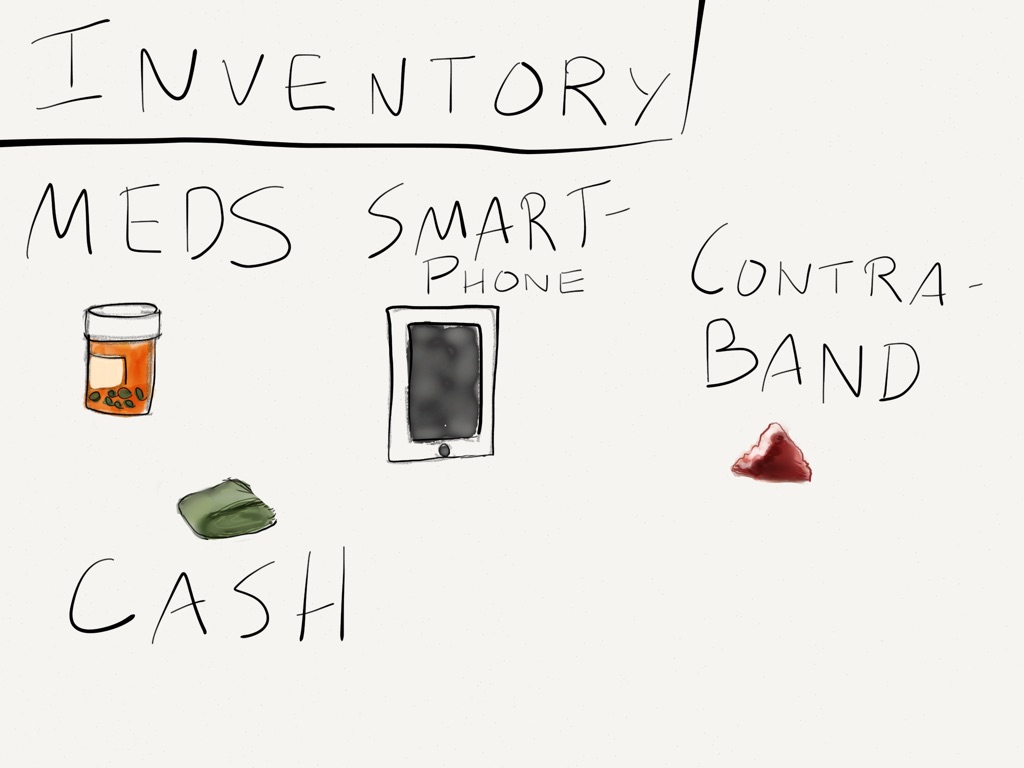 INVENTORY
MEDS
SMART-
PHONE
CONTRA-
BAND
CASH